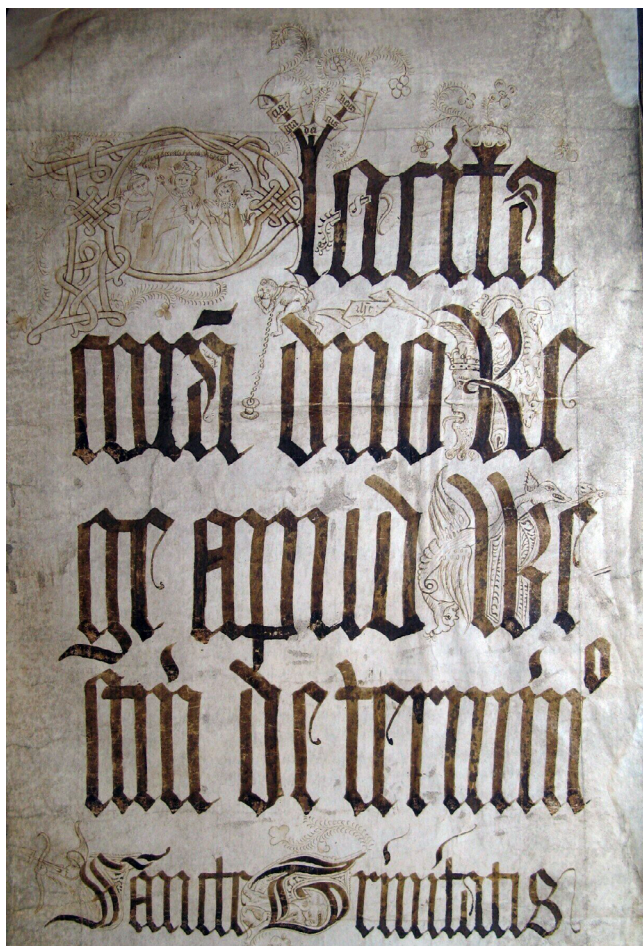 Placita
corā dno Re
ge apud We
stm̄ de termino
Sancte Trinitatis